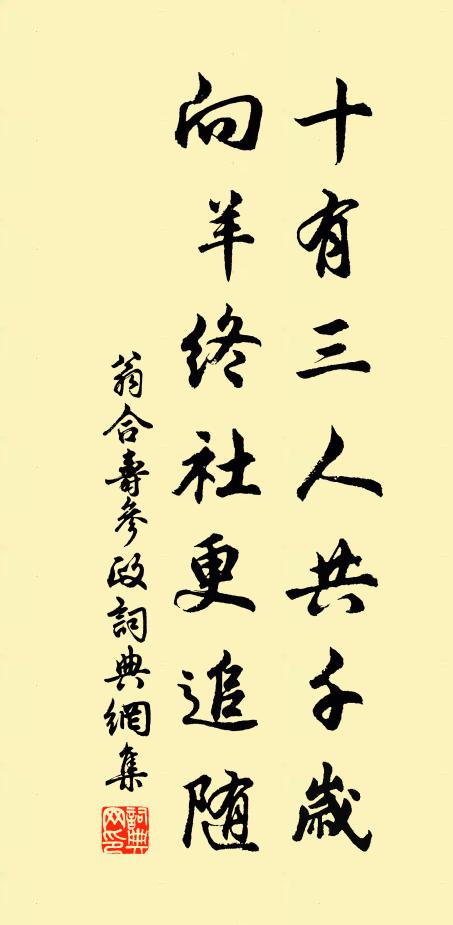 十有三人共千歲
向羊終社更追隨
翁合壽參政詞典網集
詞典網印